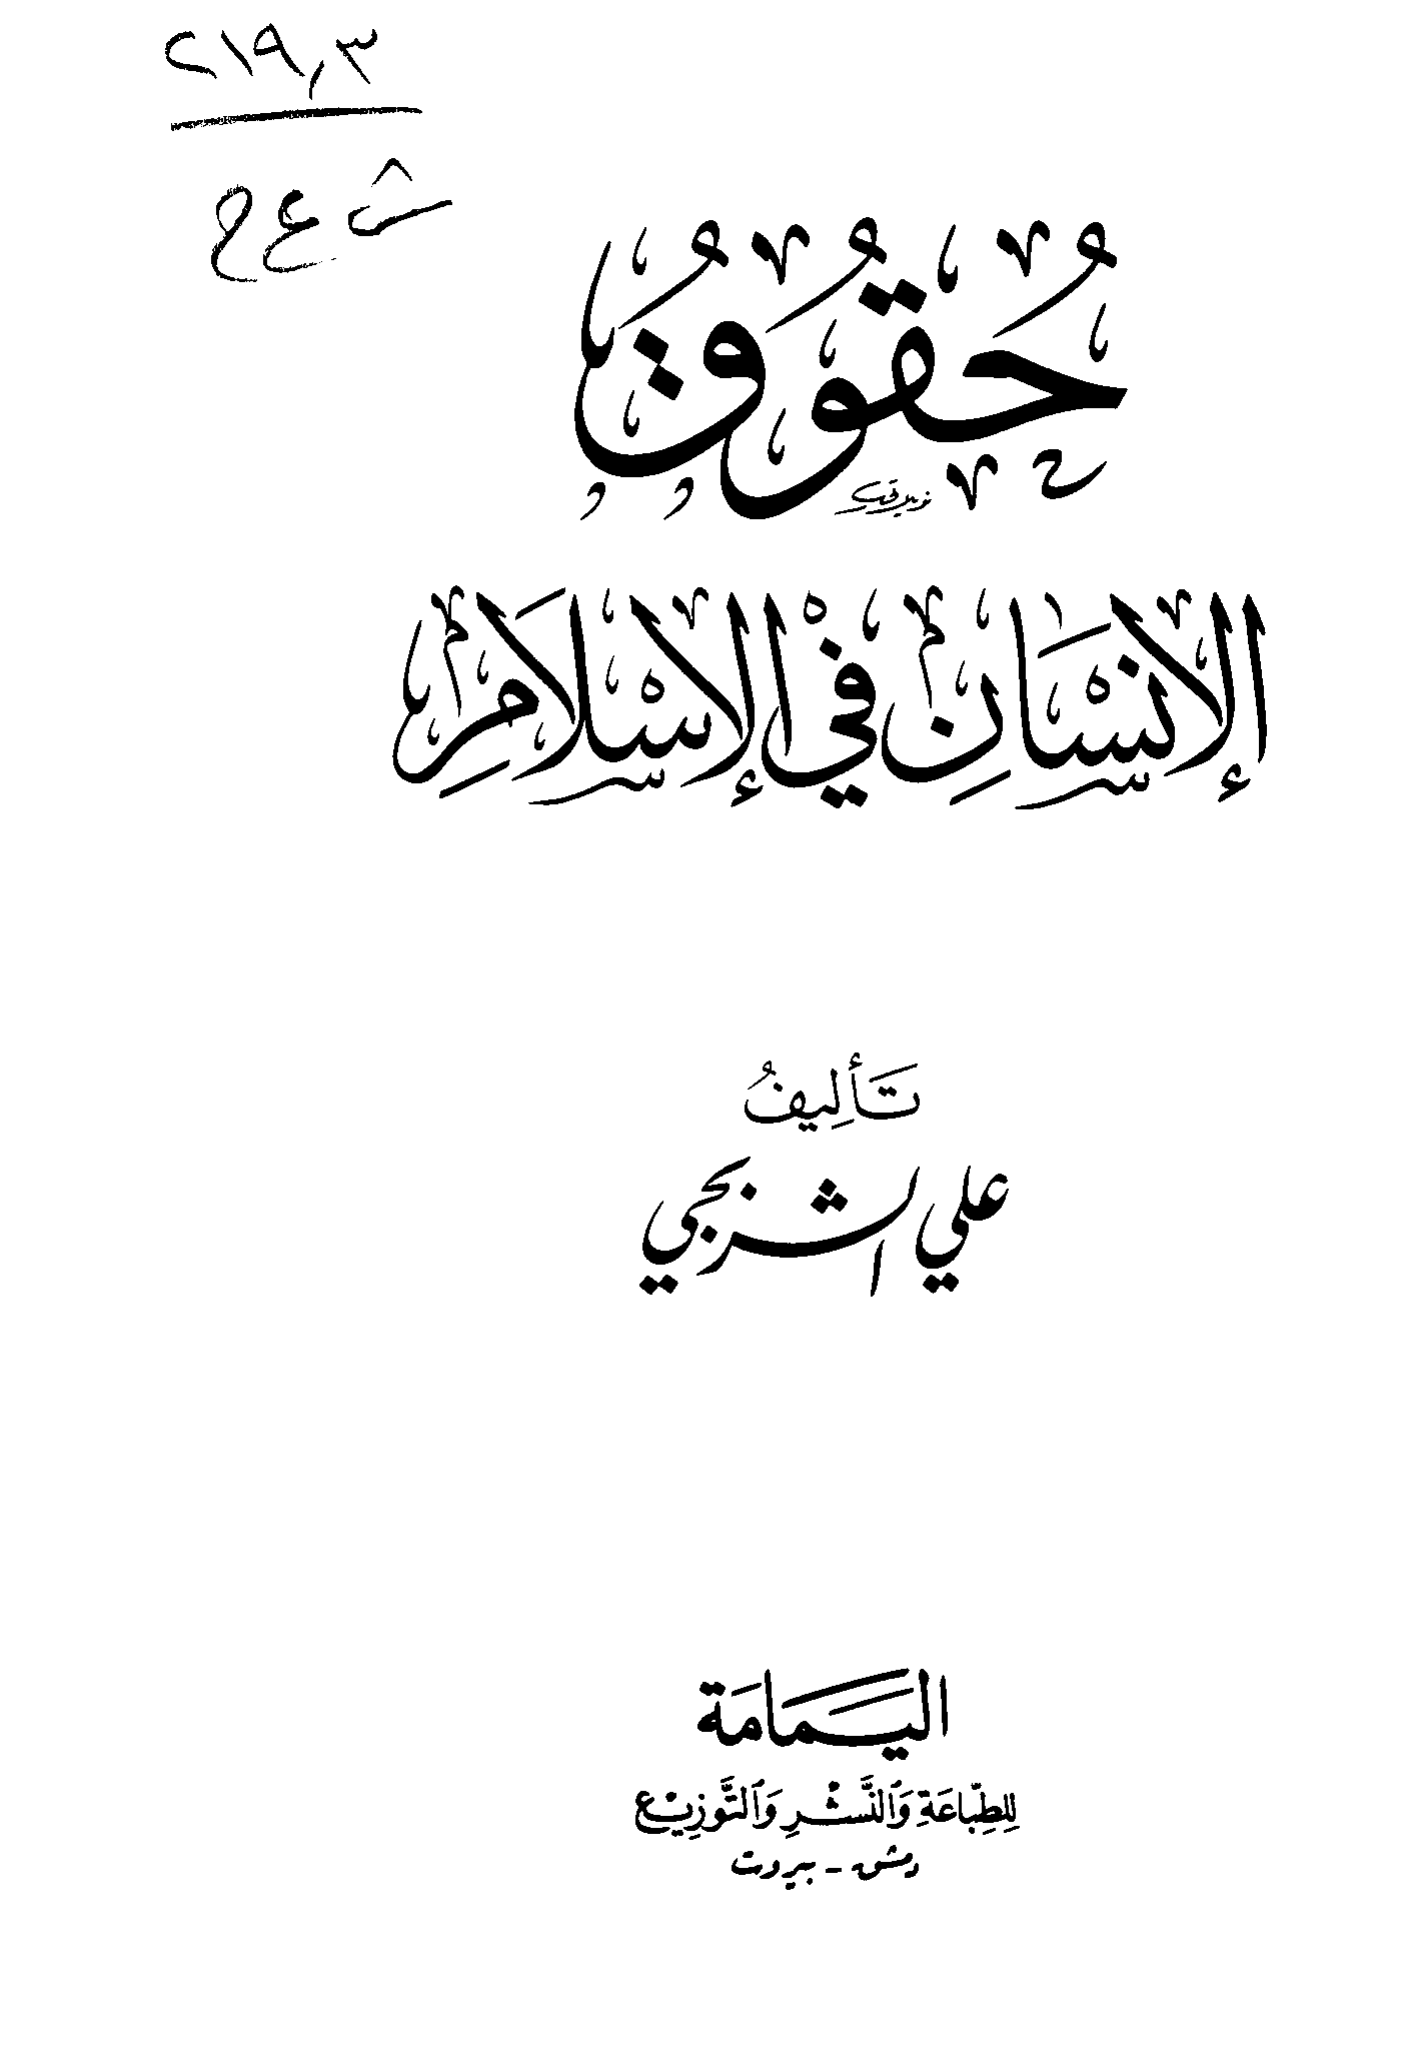 ٢١٩٫٣
ش ع ح
حُقُوقُ
الإِنْسَانِ فِي الإِسْلَامِ
تَأليفُ
علي الشربجي
اليَمَامَة
لِلطِّبَاعَةِ وَالنَّشْرِ وَالتَّوْزِيْعِ
دمشق - بيروت